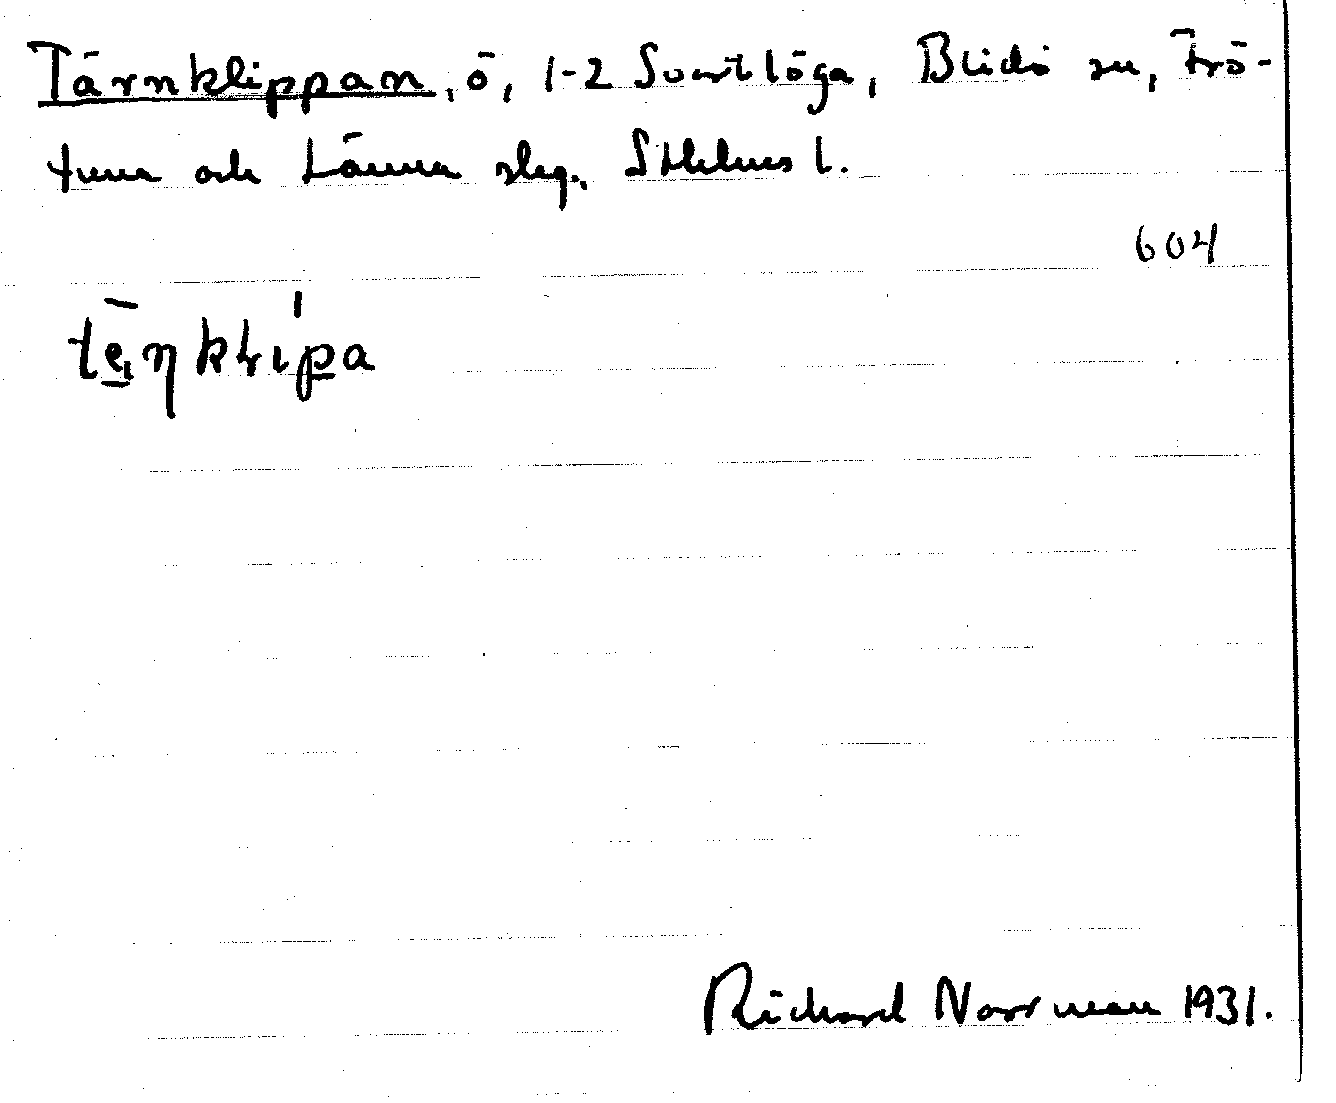 Tärnklippan, ö, 1-2 Svartlöga, Blidö sn, Frö-
tuna och Länna slg., Sthlms l.
604
Richard Norrman 1931.